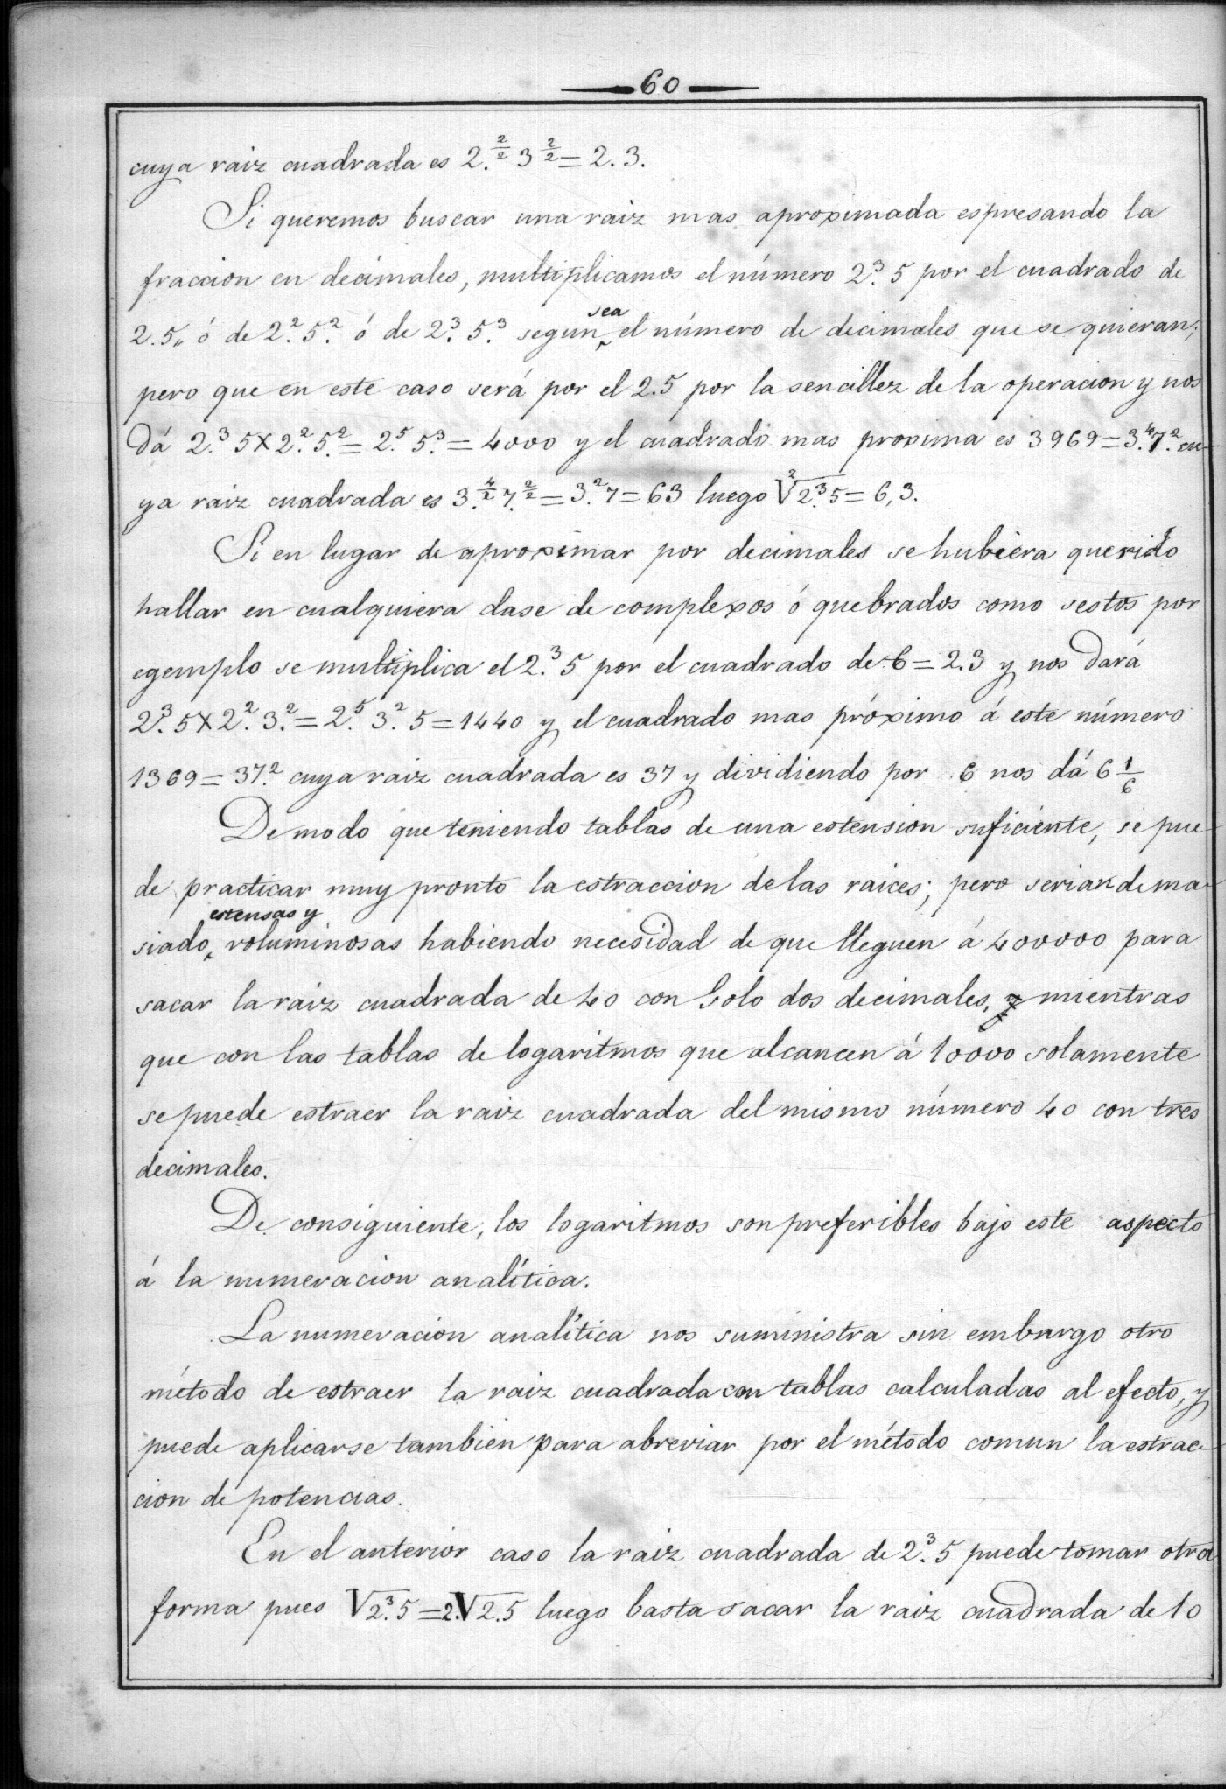 60
cuya raiz cuadrada es 2.^{2/2} 3^{2/2} = 2.3.
Si queremos buscar una raiz mas aproximada espresando la
fraccion en decimales, multiplicamos el número 2.³ 5 por el cuadrado de
2.5,, ó de 2.² 5.² ó de 2.³ 5.³ segun sea el número de decimales que se quieran;
pero que en este caso será por el 2.5 por la sencillez de la operacion y nos
dá 2.³ 5 × 2.² 5.² = 2.⁵ 5.³ = 4000 y el cuadrado mas proxima es 3969 = 3.⁴ 7.² cu-
ya raiz cuadrada es 3.^{4/2} 7.^{2/2} = 3.² 7 = 63 luego ²√2.³ 5 = 6,3.
Si en lugar de aproximar por decimales se hubiera querido
hallar en cualquiera clase de complexos ó quebrados como sestos por
egemplo se multiplica el 2.³ 5 por el cuadrado de 6 = 2.3 y nos dará
2.³ 5 × 2.² 3.² = 2.⁵ 3.² 5 = 1440 y el cuadrado mas próximo á este número
1369 = 37.² cuya raiz cuadrada es 37 y dividiendo por 6 nos dá 6 1/6
De modo que teniendo tablas de una estension suficiente, se pue-
de practicar muy pronto la estraccion de las raices; pero serian dema-
siado estensas y voluminosas habiendo necesidad de que lleguen á 400000 para
sacar la raiz cuadrada de 40 con solo dos decimales, y mientras
que con las tablas de logaritmos que alcancen á 10000 solamente
se puede estraer la raiz cuadrada del mismo número 40 con tres
decimales.
De consiguiente, los logaritmos son preferibles bajo este aspecto
á la numeracion analítica.
La numeracion analítica nos suministra sin embargo otro
método de estraer la raiz cuadrada con tablas calculadas al efecto, y
puede aplicarse tambien para abreviar por el método comun la estrac-
cion de potencias.
En el anterior caso la raiz cuadrada de 2.³ 5 puede tomar otra
forma pues √2.³ 5 = 2.√2.5 luego basta sacar la raiz cuadrada de 10